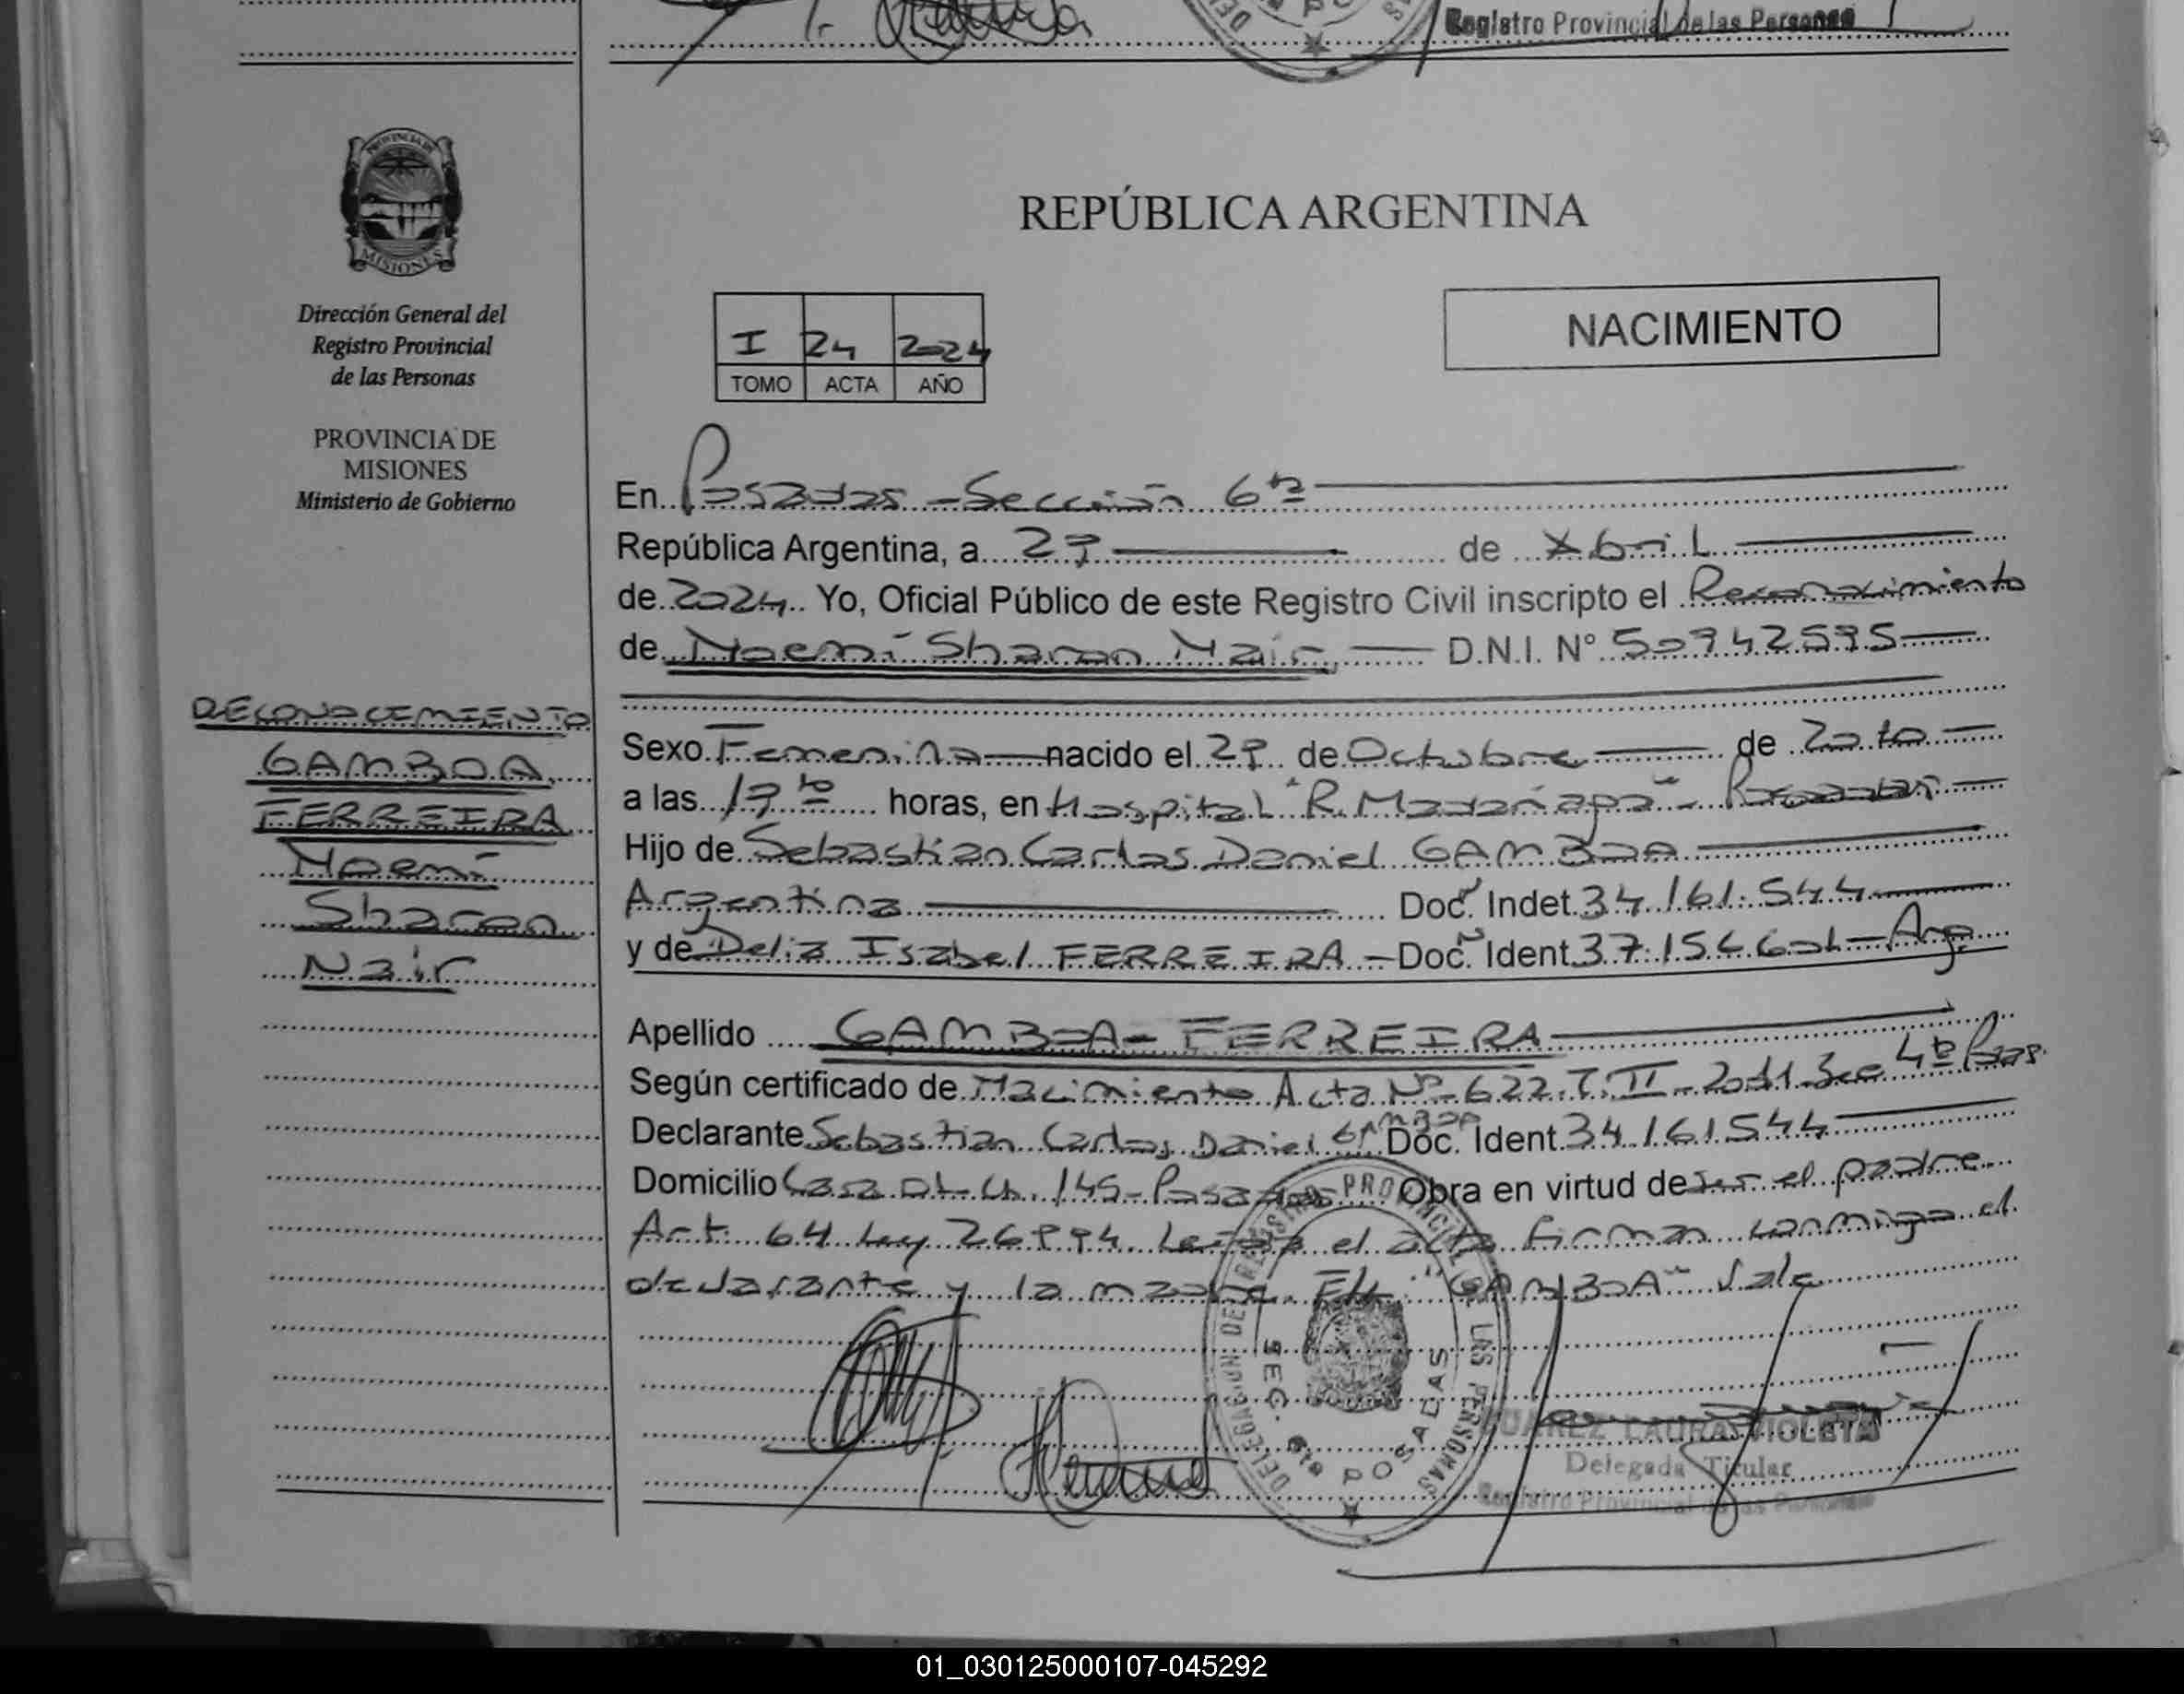 Registro Provincial de las Personas
PROVINCIA DE
MISIONES
Dirección General del
Registro Provincial
de las Personas
PROVINCIA DE
MISIONES
Ministerio de Gobierno
RECONOCIMIENTO
GAMBOA
FERREIRA
Noemí
Sharon
Nair
REPÚBLICA ARGENTINA
NACIMIENTO
I 24 2024
TOMO ACTA AÑO
En Posadas - Sección 6ta
República Argentina, a 29 de Abril
de 2024. Yo, Oficial Público de este Registro Civil inscripto el Reconocimiento
de Noemí Sharon Nair D.N.I. Nº 50942595
Sexo Femenino nacido el 29 de Octubre de 2010
a las 19 hs horas, en Hospital "R. Madariaga" - Posadas
Hijo de Sebastián Carlos Daniel GAMBOA
Argentina Doc. Indet. 34.161.544
y de Delia Isabel FERREIRA - Doc. Ident. Arg.
Apellido GAMBOA - FERREIRA
Según certificado de Nacimiento Acta Nº 622. T. II - 2011 Sec 4ta Pdas.
Declarante Sebastián Carlos Daniel GAMBOA Doc. Ident. 34.161.544
Domicilio Casa Ch. 145 - Posadas Obra en virtud de ser el padre
Art. 64 Ley 26994. Leída el acta firman conmigo el
declarante y la madre. E/L: "GAMBOA" Vale
DELEGACION DEL REGISTRO PROVINCIAL DE LAS PERSONAS
SEC. 6ta POSADAS
SUAREZ LAURA VIOLETA
Delegada Titular
Registro Provincial de las Personas
01_030125000107-045292